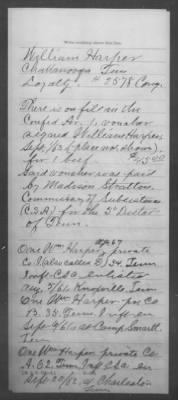 Write nothing above this line.
William Harper
Chattanooga Tenn
Loyalty. # 2578 Cong.
There is on file in the
Confed Ar. 1, voucher
signed William Harper,
Sept/62 (place not shown)
for 1 beef $45.00
Said voucher was paid
by Madison Stratton
Commissary of Subsistence
(C.S.A) for the 3d District
of Tenn.
One Wm Harper, private
Co I, also called E, 34. Tenn
Inft. C.S.a enlisted
Aug. 7/61 Knoxville Tenn
One Wm Harper pvt Co
B. 35. Tenn Inft en
Sep 9/61 at Camp Smartt
Tenn
One Wm Harper private Co.
A. 62. Tenn Inf C.S.a en
Sept 29/62, at Charleston
Tenn